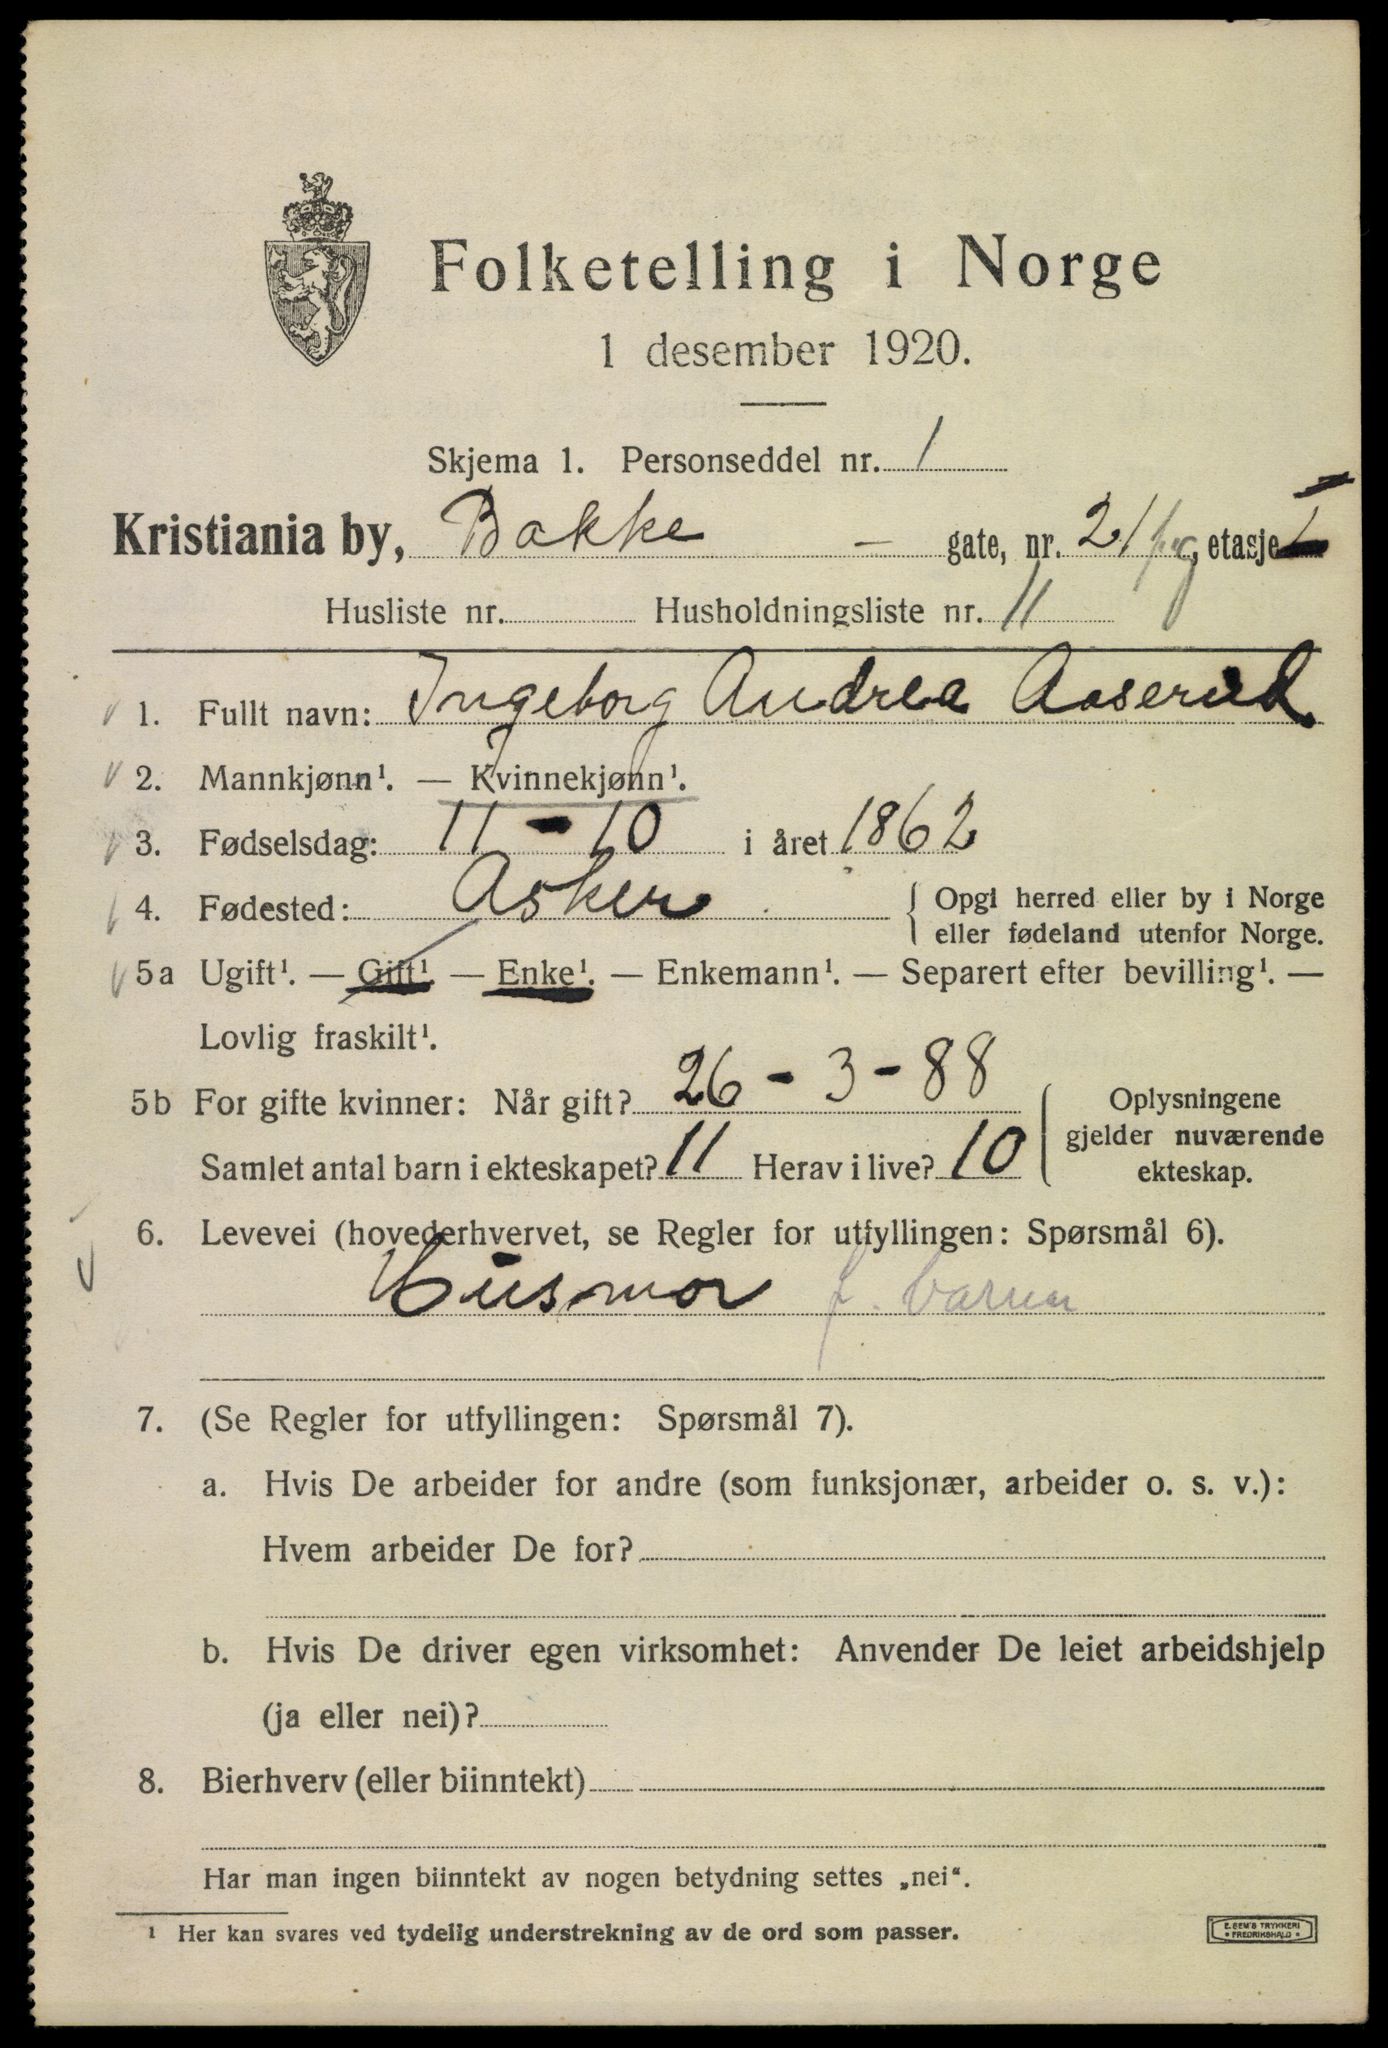 Folketelling i Norge
1 desember 1920.
Skjema 1. Personseddel nr. 1
Kristiania by, Bakke - gate, nr. 21 , etasje I
Husliste nr. Husholdningsliste nr. 11
1. Fullt navn: Ingeborg Andrea Aaserud
2. Mannkjønn¹. — Kvinnekjønn¹.
3. Fødselsdag: 11 - 10 i året 1862
4. Fødested: Asker { Opgi herred eller by i Norge
eller fødeland utenfor Norge.
5a Ugift¹. — Gift¹. — Enke¹. — Enkemann¹. — Separert efter bevilling¹. —
Lovlig fraskilt¹.
5b For gifte kvinner: Når gift? 26 - 3 - 88
Samlet antal barn i ekteskapet? 11 Herav i live? 10
Oplysningene
gjelder nuværende
ekteskap.
6. Levevei (hovederhvervet, se Regler for utfyllingen: Spørsmål 6).
Husmor f. barna
7. (Se Regler for utfyllingen: Spørsmål 7).
a. Hvis De arbeider for andre (som funksjonær, arbeider o. s. v.):
Hvem arbeider De for?
b. Hvis De driver egen virksomhet: Anvender De leiet arbeidshjelp
(ja eller nei)?
8. Bierhverv (eller biinntekt)
Har man ingen biinntekt av nogen betydning settes „nei“.
¹ Her kan svares ved tydelig understrekning av de ord som passer.
E. SEM'S TRYKKERI
• FREDRIKSHALD •